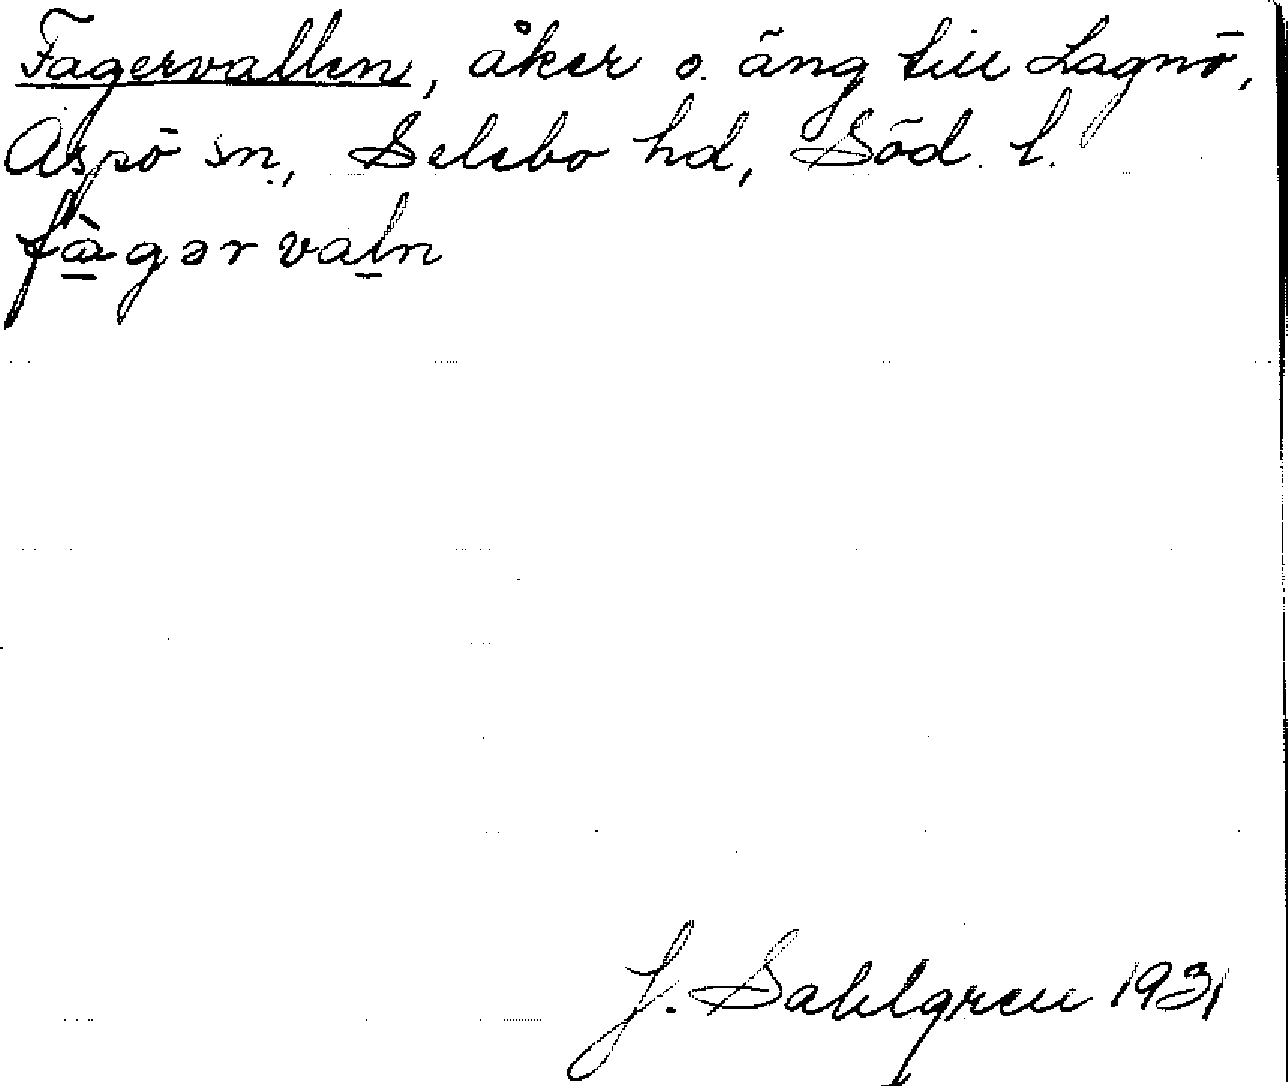 Fagervallen, åker o. äng till Lagnö,
Aspö sn., Selebo hd, Söd. l.
fàgərvaln
J. Sahlgren 1931